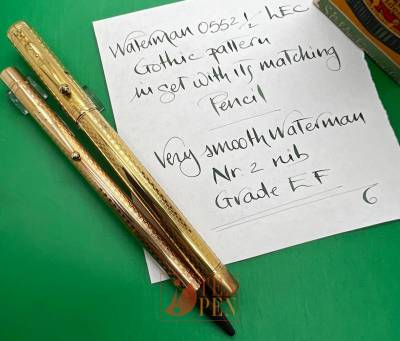 Waterman 0552½ LEC
Gothic pattern
in set with its matching
Pencil
Very smooth Waterman
Nr. 2 nib
Grade EF
6
PEN